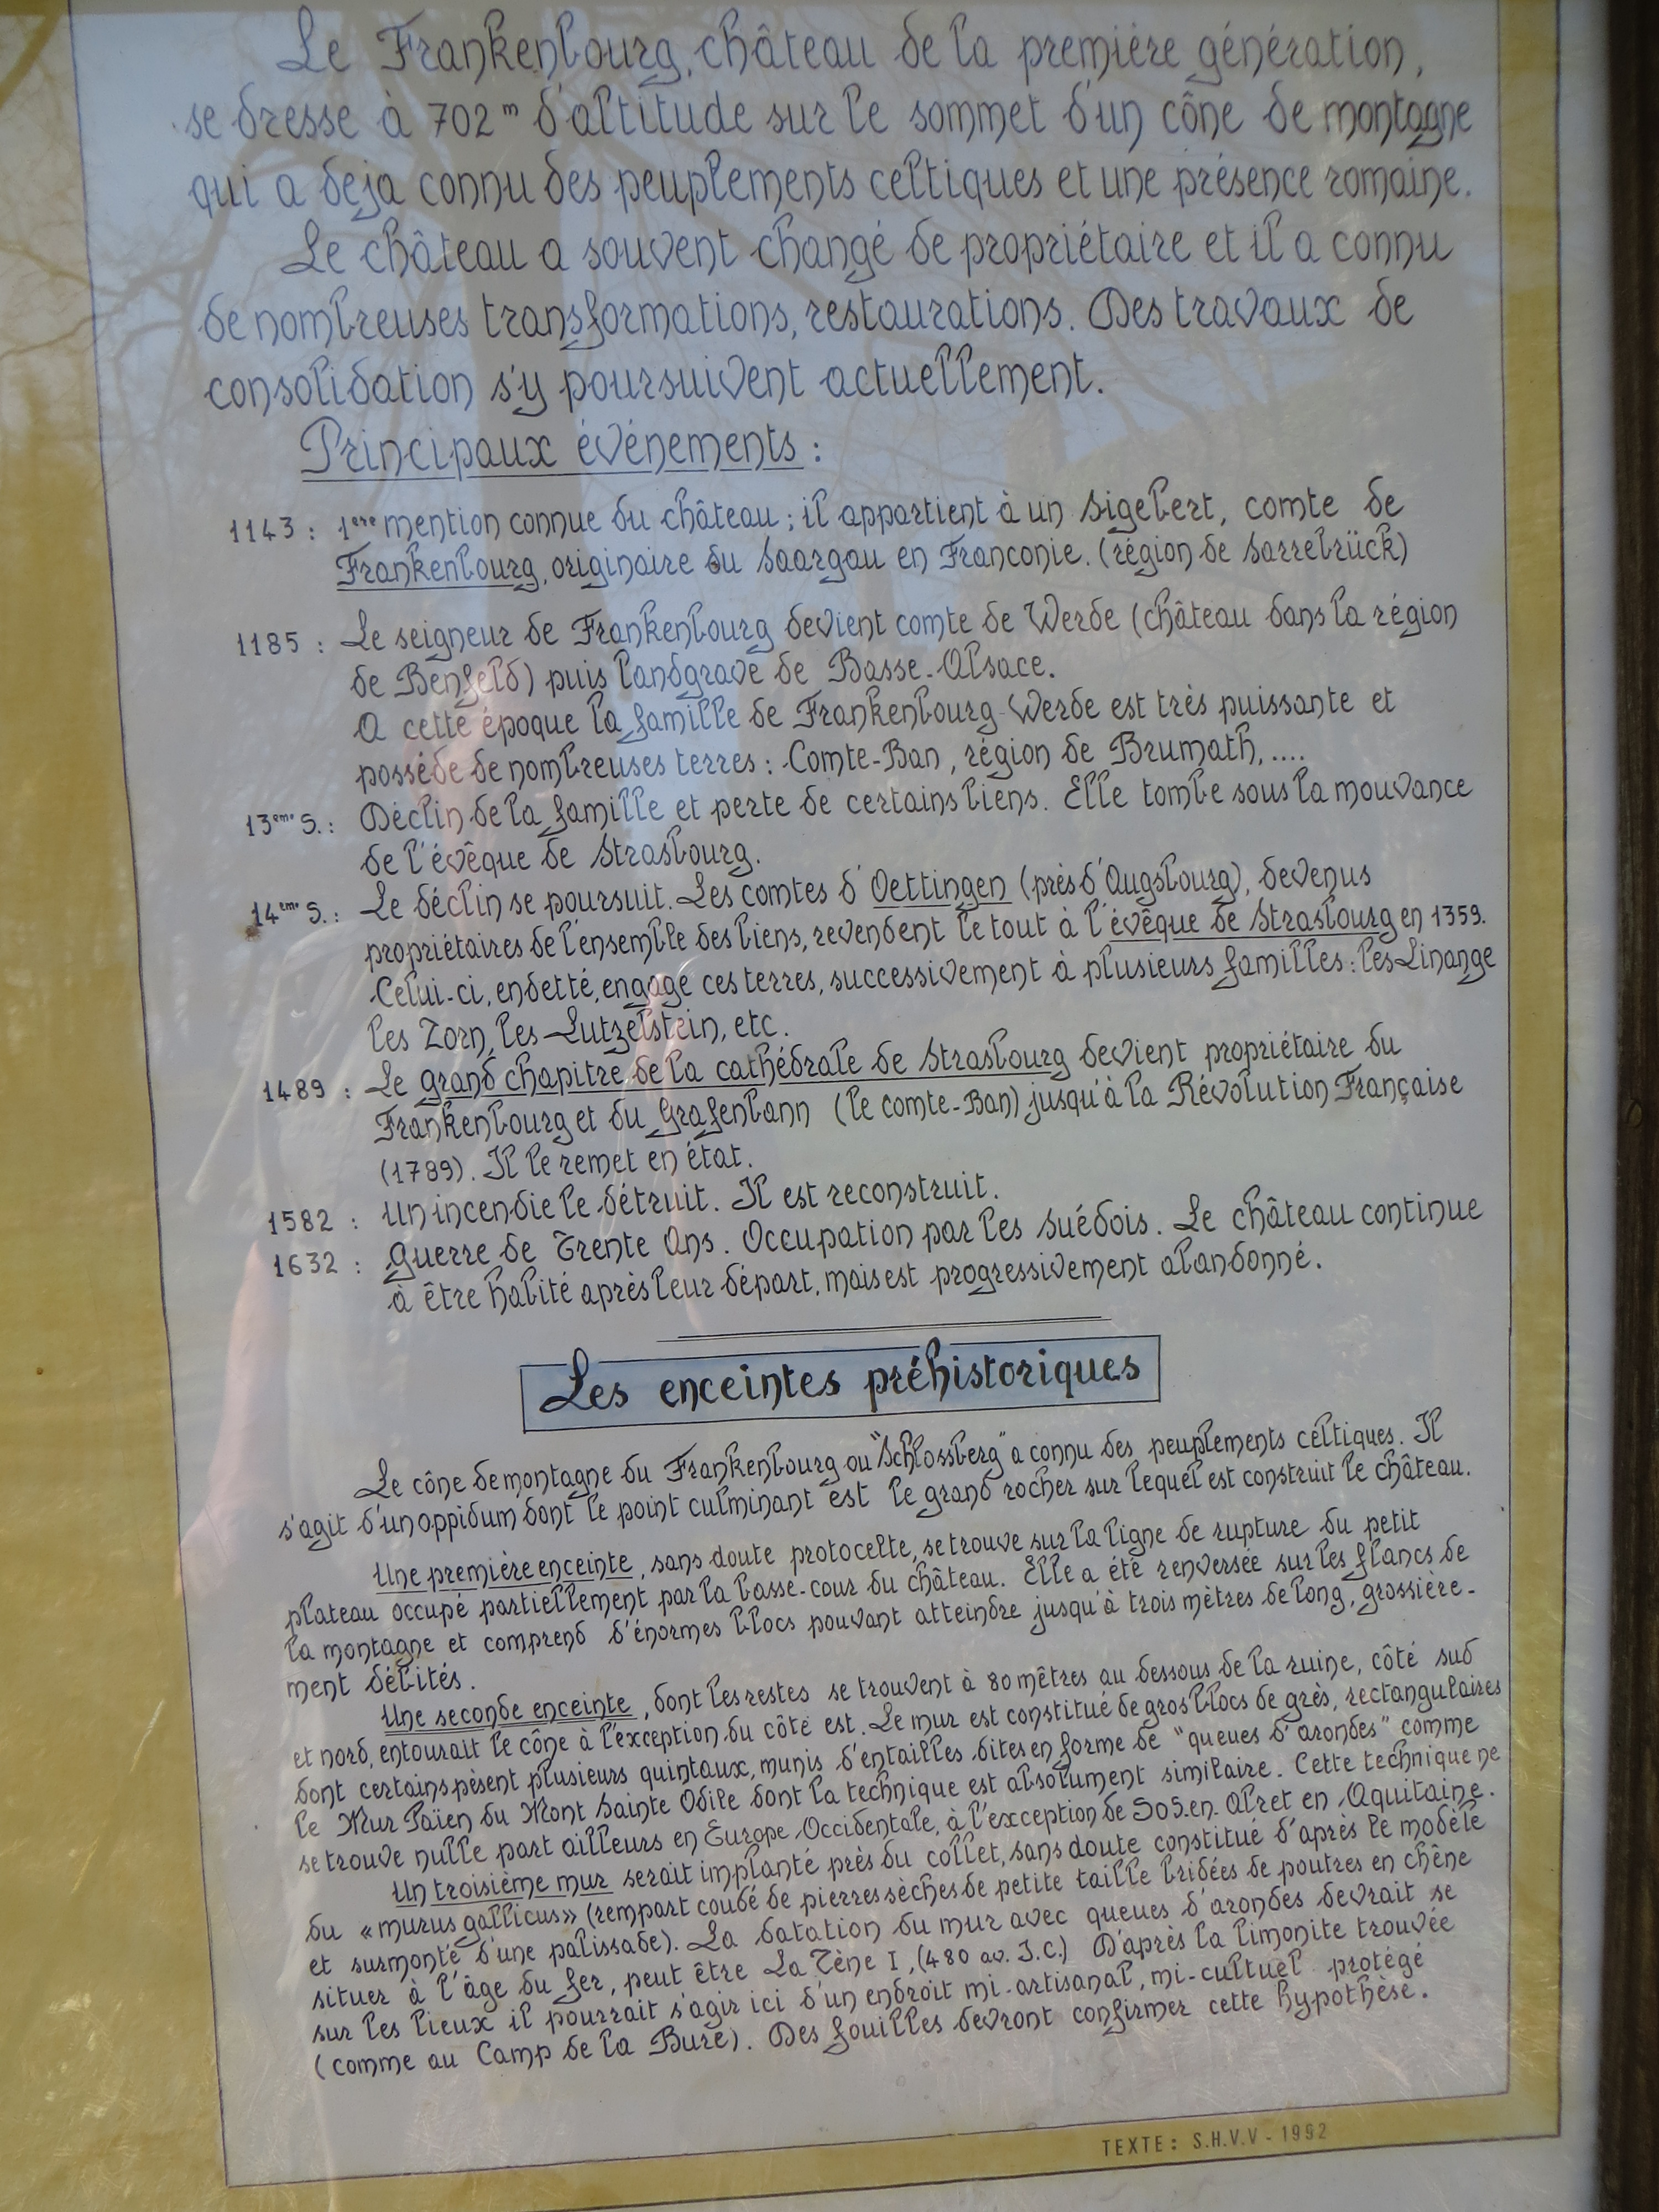 Le Frankenbourg, château de la première génération,
se dresse à 702 m d'altitude sur le sommet d'un cône de montagne
qui a deja connu des peuplements celtiques et une présence romaine.
Le château a souvent changé de propriétaire et il a connu
de nombreuses transformations, restaurations. Des travaux de
consolidation s'y poursuivent actuellement.
Principaux événements :
1143 : 1ère mention connue du château ; il appartient à un Sigebert, comte de
Frankenbourg, originaire du Saargau en Franconie. (région de Sarrebrück)
1185 : Le seigneur de Frankenbourg devient comte de Werde (château dans la région
de Benfeld) puis landgrave de Basse-Alsace.
A cette époque la famille de Frankenbourg-Werde est très puissante et
possède de nombreuses terres : Comte-Ban, région de Brumath, ....
13ème S. : Déclin de la famille et perte de certains biens. Elle tombe sous la mouvance
de l'évêque de Strasbourg.
14ème S. : Le déclin se poursuit. Les comtes d'Oettingen (près d'Augsbourg), devenus
propriétaires de l'ensemble des biens, revendent le tout à l'évêque de Strasbourg en 1359.
Celui-ci, endetté, engage ces terres, successivement à plusieurs familles : les Linange
les Zorn, les Lutzelstein, etc.
1489 : Le grand chapitre de la cathédrale de Strasbourg devient propriétaire du
Frankenbourg et du Grafenbann (le comte-Ban) jusqu'à la Révolution Française
(1789). Il le remet en état.
1582 : Un incendie le détruit. Il est reconstruit.
1632 : Guerre de Trente Ans. Occupation par les Suédois. Le château continue
à être habité après leur départ, mais est progressivement abandonné.
Les enceintes préhistoriques
Le cône de montagne du Frankenbourg ou "Schlossberg" a connu des peuplements celtiques. Il
s'agit d'un oppidum dont le point culminant est le grand rocher sur lequel est construit le château.
Une première enceinte, sans doute protocelte, se trouve sur la ligne de rupture du petit
plateau occupé partiellement par la basse-cour du château. Elle a été renversée sur les flancs de
la montagne et comprend d'énormes blocs pouvant atteindre jusqu'à trois mètres de long, grossière-
ment débités.
Une seconde enceinte, dont les restes se trouvent à 80 mêtres au dessous de la ruine, côté sud
et nord, entourait le cône à l'exception du côté est. Le mur est constitué de gros blocs de grès, rectangulaires
dont certains pèsent plusieurs quintaux, munis d'entailles dites en forme de "queues d'arondes" comme
le Mur Païen du Mont Sainte Odile dont la technique est absolument similaire. Cette technique ne
se trouve nulle part ailleurs en Europe Occidentale, à l'exception de Sos.en.Albret en Aquitaine.
Un troisième mur serait implanté près du collet, sans doute constitué d'après le modèle
du «murus gallicus» (rempart coudé de pierres sèches de petite taille bridées de poutres en chêne
et surmonté d'une palissade). La datation du mur avec queues d'arondes devrait se
situer à l'âge du fer, peut être La Tène I, (480 av. J.C.) D'après la limonite trouvée
sur les lieux il pourrait s'agir ici d'un endroit mi-artisanal, mi-cultuel protégé
(comme au Camp de la Bure). Des fouilles devront confirmer cette hypothèse.
TEXTE : S.H.V.V - 1992